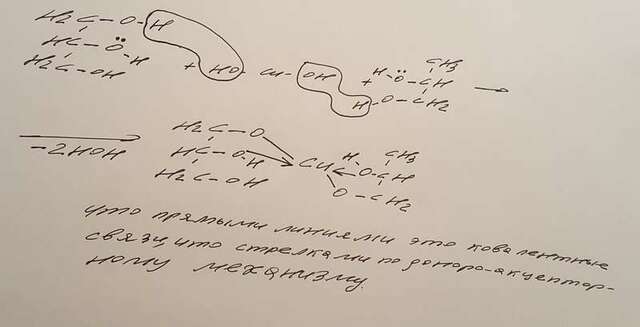 H₂C – O – H
HC – Ö
H
H₂C – OH
+ HO – Cu – OH
+ H – Ö – CH
CH₃
H – O – CH₂
–2HOH
H₂C – O
HC – O
H
H₂C – OH
Cu
H
O – CH
CH₃
O – CH₂
что прямыми линиями это ковалентные
связи, что стрелками по доноро-акцептор-
ному механизму.